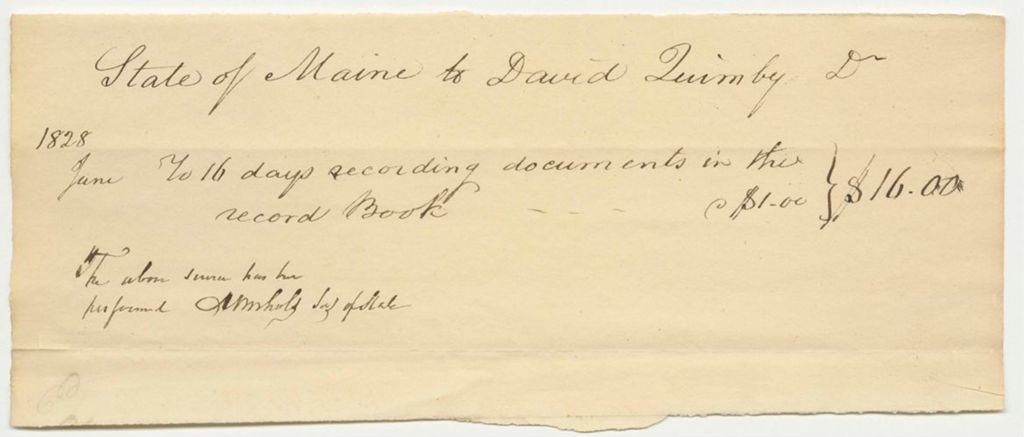 State of Maine to David Quimby Dr
1828
June To 16 days recording documents in the
record Book - - - @ $1.00 } $16.00
The above service has been
performed Secy of State